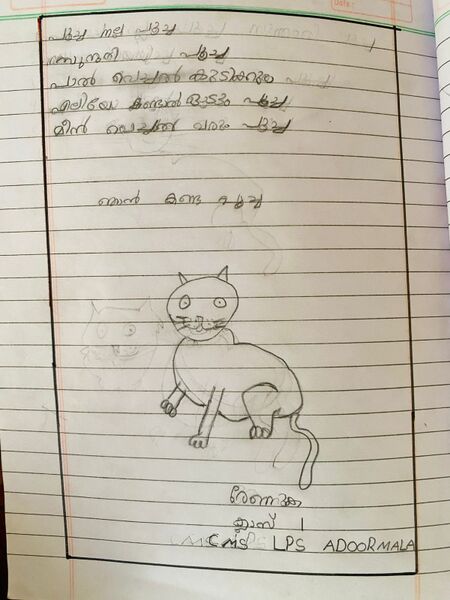 പൂച്ച നല്ല പൂച്ച
സുന്ദരി പൂച്ച
പാൽ വെച്ചാൽ കുടിക്കും
എലിയെ കണ്ടാൽ ഓടും പൂച്ച
മീൻ വെച്ചാൽ വരും പൂച്ച
ഞാൻ കണ്ട പൂച്ച
ക്ലാസ് 1
CMS LPS ADOORMALA